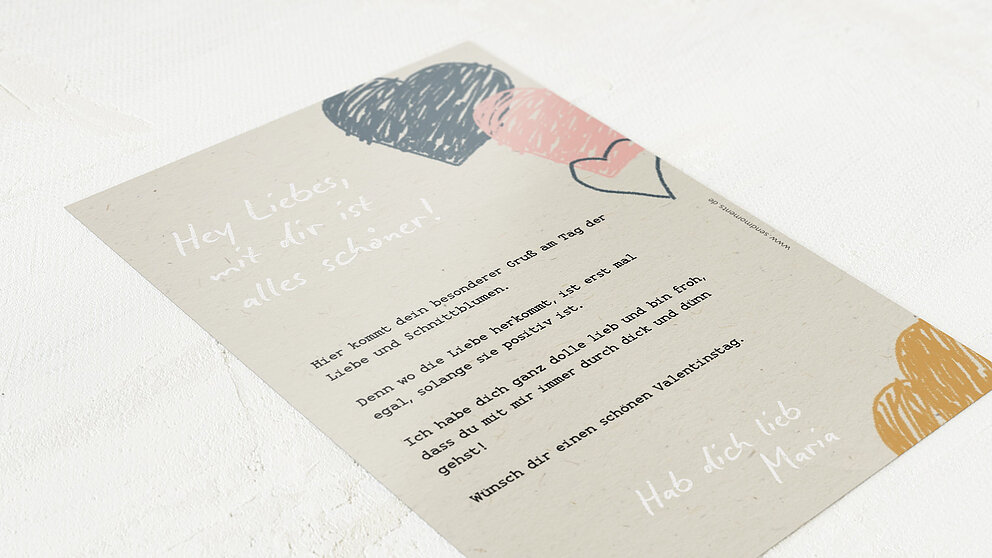 Hey Liebes,
mit dir ist
alles schöner!
www.sendmoments.de
Hier kommt dein besonderer Gruß am Tag der
Liebe und Schnittblumen.
Denn wo die Liebe herkommt, ist erst mal
egal, solange sie positiv ist.
Ich habe dich ganz dolle lieb und bin froh,
dass du mit mir immer durch dick und dünn
gehst!
Wünsch dir einen schönen Valentinstag.
Hab dich lieb
Maria